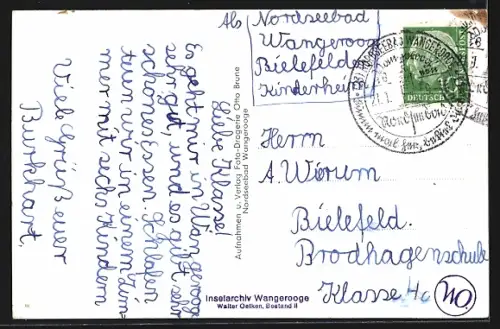 Abs
Nordseebad
Wangerooge
Bielefelder
Kinderheim
Liebe Klasse!
Es geht mir in Wangerooge
sehr gut, und es gibt sehr
schönes Essen. Schlafen
tun wir in einem Zim-
mer mit sechs Kindern
Viele Grüße euer
Burkhart.
Aufnahmen u. Verlag Foto-Drogerie Otto Brune
Nordseebad Wangerooge
DEUTSCHE
10
NORDSEEBAD WANGEROOGE
Herrn
A. Wörum
Bielefeld
Brodhagenschule
Klasse 4c
Inselarchiv Wangerooge
Walter Oetken, Bestand II